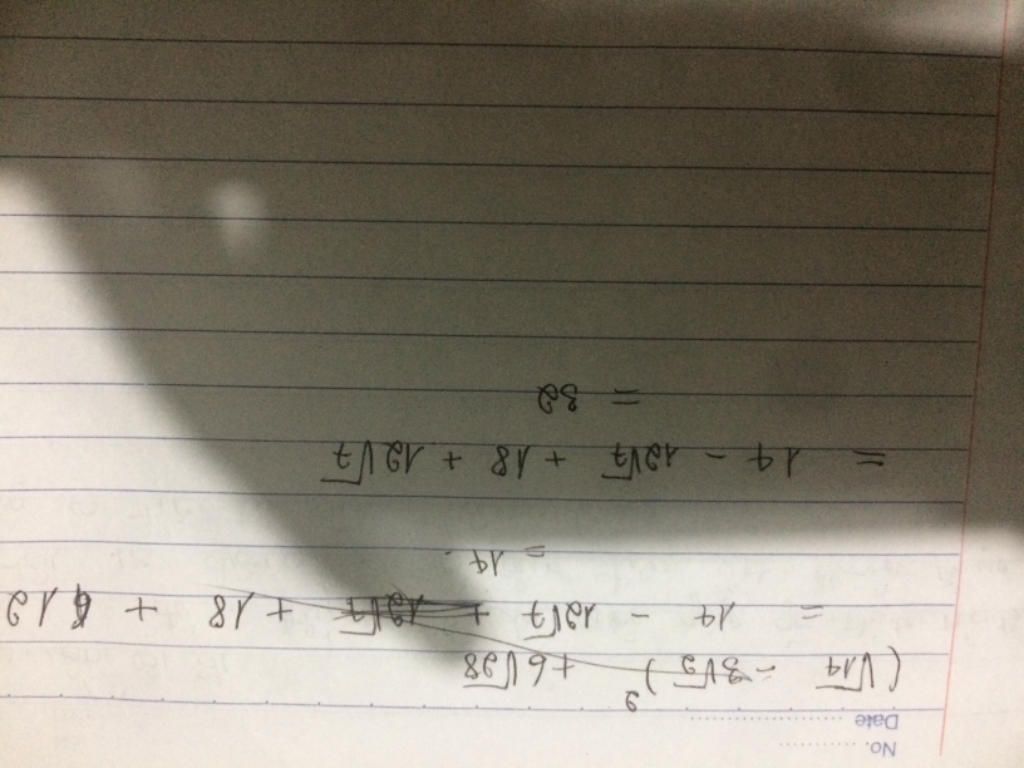 No. ............
Date ......................
(√14 - 3√2)² + 6√28
= 14 - 12√7 + 12√7 + 18 + 12
= 14
= 14 - 12√7 + 18 + 12√7
= 32